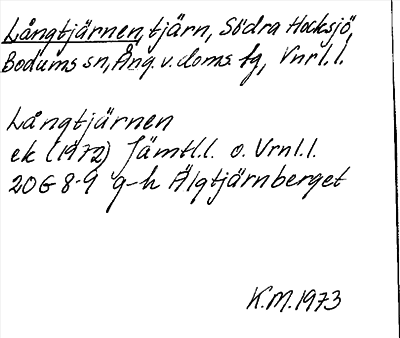 Långtjärnen, tjärn, Södra Hocksjö,
Bodums sn, Ång. v. doms fg, Vnrl.l.
Långtjärnen
ek (1972) Jämtl.l. o. Vrnl.l.
20G 8-9 g-h Älgtjärnberget
K.M. 1973